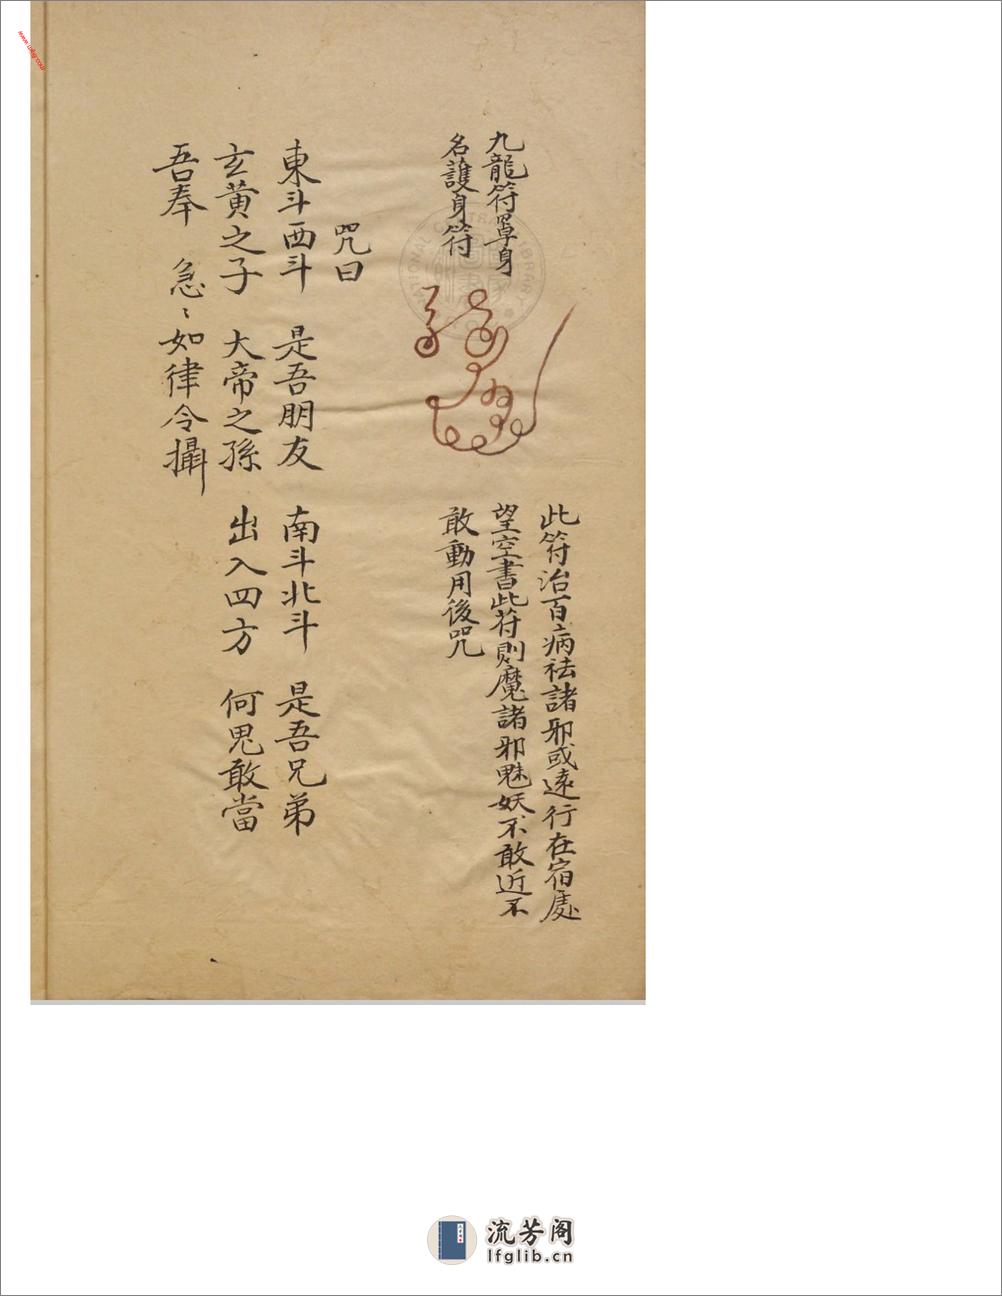 九龍符罩身
名護身符
此符治百病祛諸邪或遠行在宿處
望空書此符則魔諸邪魁妖不敢近不
敢動用後咒
咒曰
東斗西斗 是吾朋友 南斗北斗 是吾兄弟
玄黄之子 大帝之孫 出入四方 何鬼敢當
吾奉 急〻如律令攝
NATIONAL CENTRAL LIBRARY
流芳阁
lfglib.cn